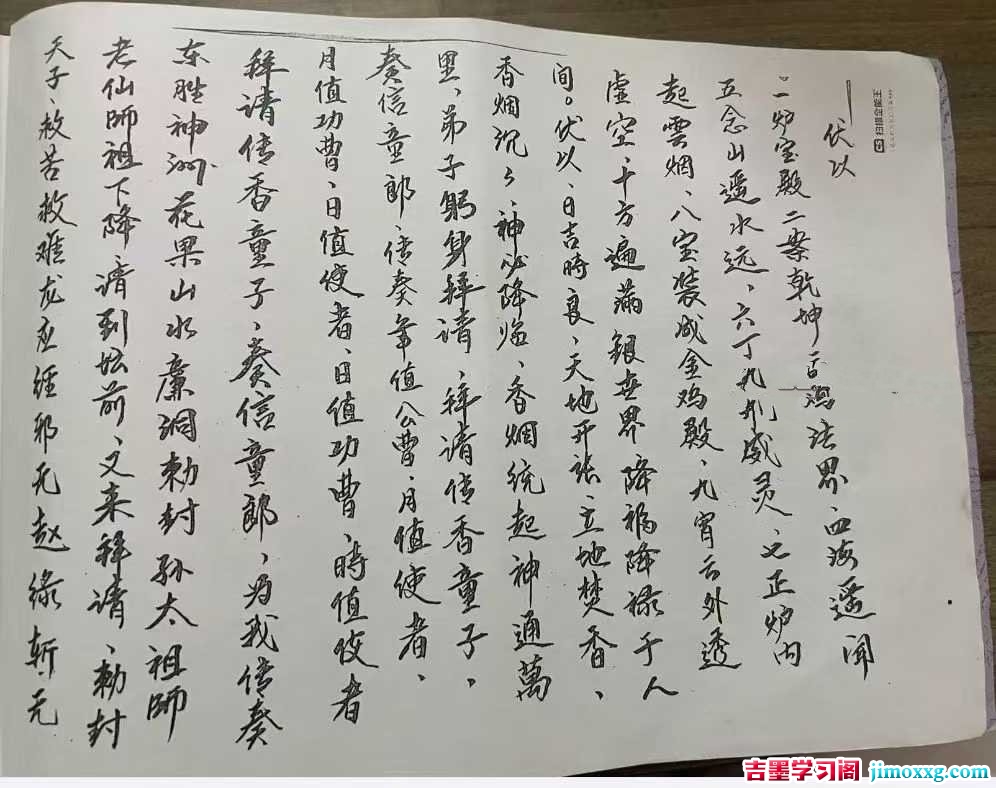 伏以
一炉宝殿二案乾坤三香鸿法界、四海遥闻
五念山遥水远、六丁九州威灵、七正炉内
起雲烟、八宝装成金鸡殿、九宵云外透
虚空、十方遍满银世界降福降禄于人
间。伏以、日吉時良、天地开张、立地焚香、
香烟沉沉、神必降临、香烟统起神通萬
里、弟子躬身拜请、拜请传香童子、
奏信童郎、传奏年值公曹、月值使者、
月值功曹、日值使者、日值功曹、時值使者
拜请传香童子、奏信童郎、为我传奏
东胜神洲花果山水廉洞勅封孙太祖師
老仙師祖下降请到坛前、又来拜请、勅封
天子、救苦救难龙应经邪无赵缘斩无
扫描全能王
吉墨学习阁 jimoxxg.com